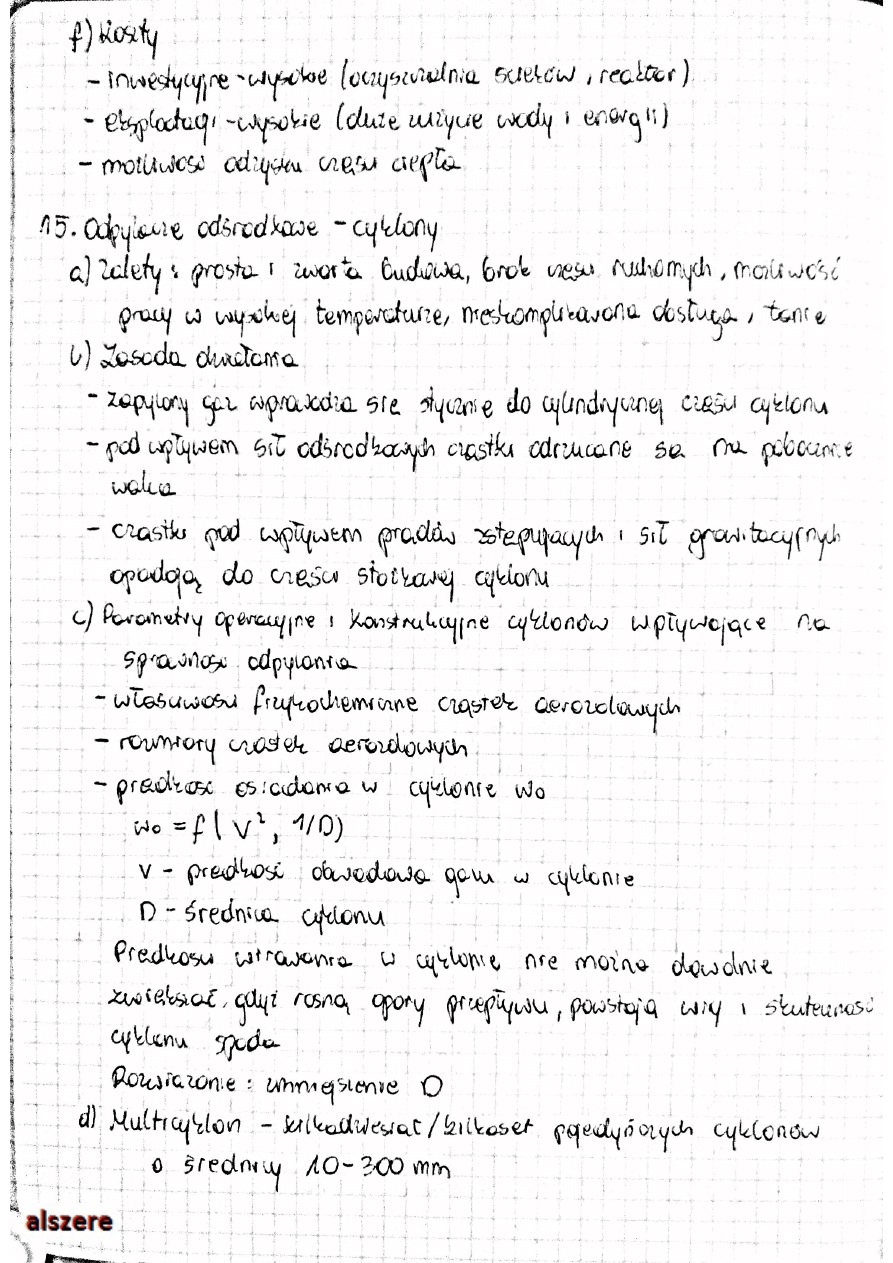 f) Koszty
- inwestycyjne - wysokie (oczyszczalnia ścieków, reaktor)
- eksploatacji - wysokie (duże zużycie wody i energii)
- możliwość odzysku części ciepła
15. Odpylacze odśrodkowe - cyklony
a) Zalety: prosta i zwarta budowa, brak części ruchomych, możliwość
pracy w wysokiej temperaturze, nieskomplikowana obsługa, tanie
b) Zasada działania
- zapylony gaz wprowadza się stycznie do cylindrycznej części cyklonu
- pod wpływem sił odśrodkowych cząstki odrzucane są na pobocznice
walca
- cząstki pod wpływem prądów zstępujących i sił grawitacyjnych
opadają do części stożkowej cyklonu
c) Parametry operacyjne i konstrukcyjne cyklonów wpływające na
sprawność odpylania
- właściwości fizykochemiczne cząstek aerozolowych
- rozmiary cząstek aerozolowych
- prędkość osiadania w cyklonie wo
wo = f( V², 1/D)
V - prędkość obwodowa gazu w cyklonie
D - średnica cyklonu
Prędkości wirowania w cyklonie nie można dowolnie
zwiększać, gdyż rosną opory przepływu, powstają wiry i skuteczność
cyklonu spada
Rozwiązanie: zmniejszenie D
d) Multicyklon - kilkadziesiąt/kilkaset pojedyńczych cyklonów
o średnicy 10-300 mm
alszere